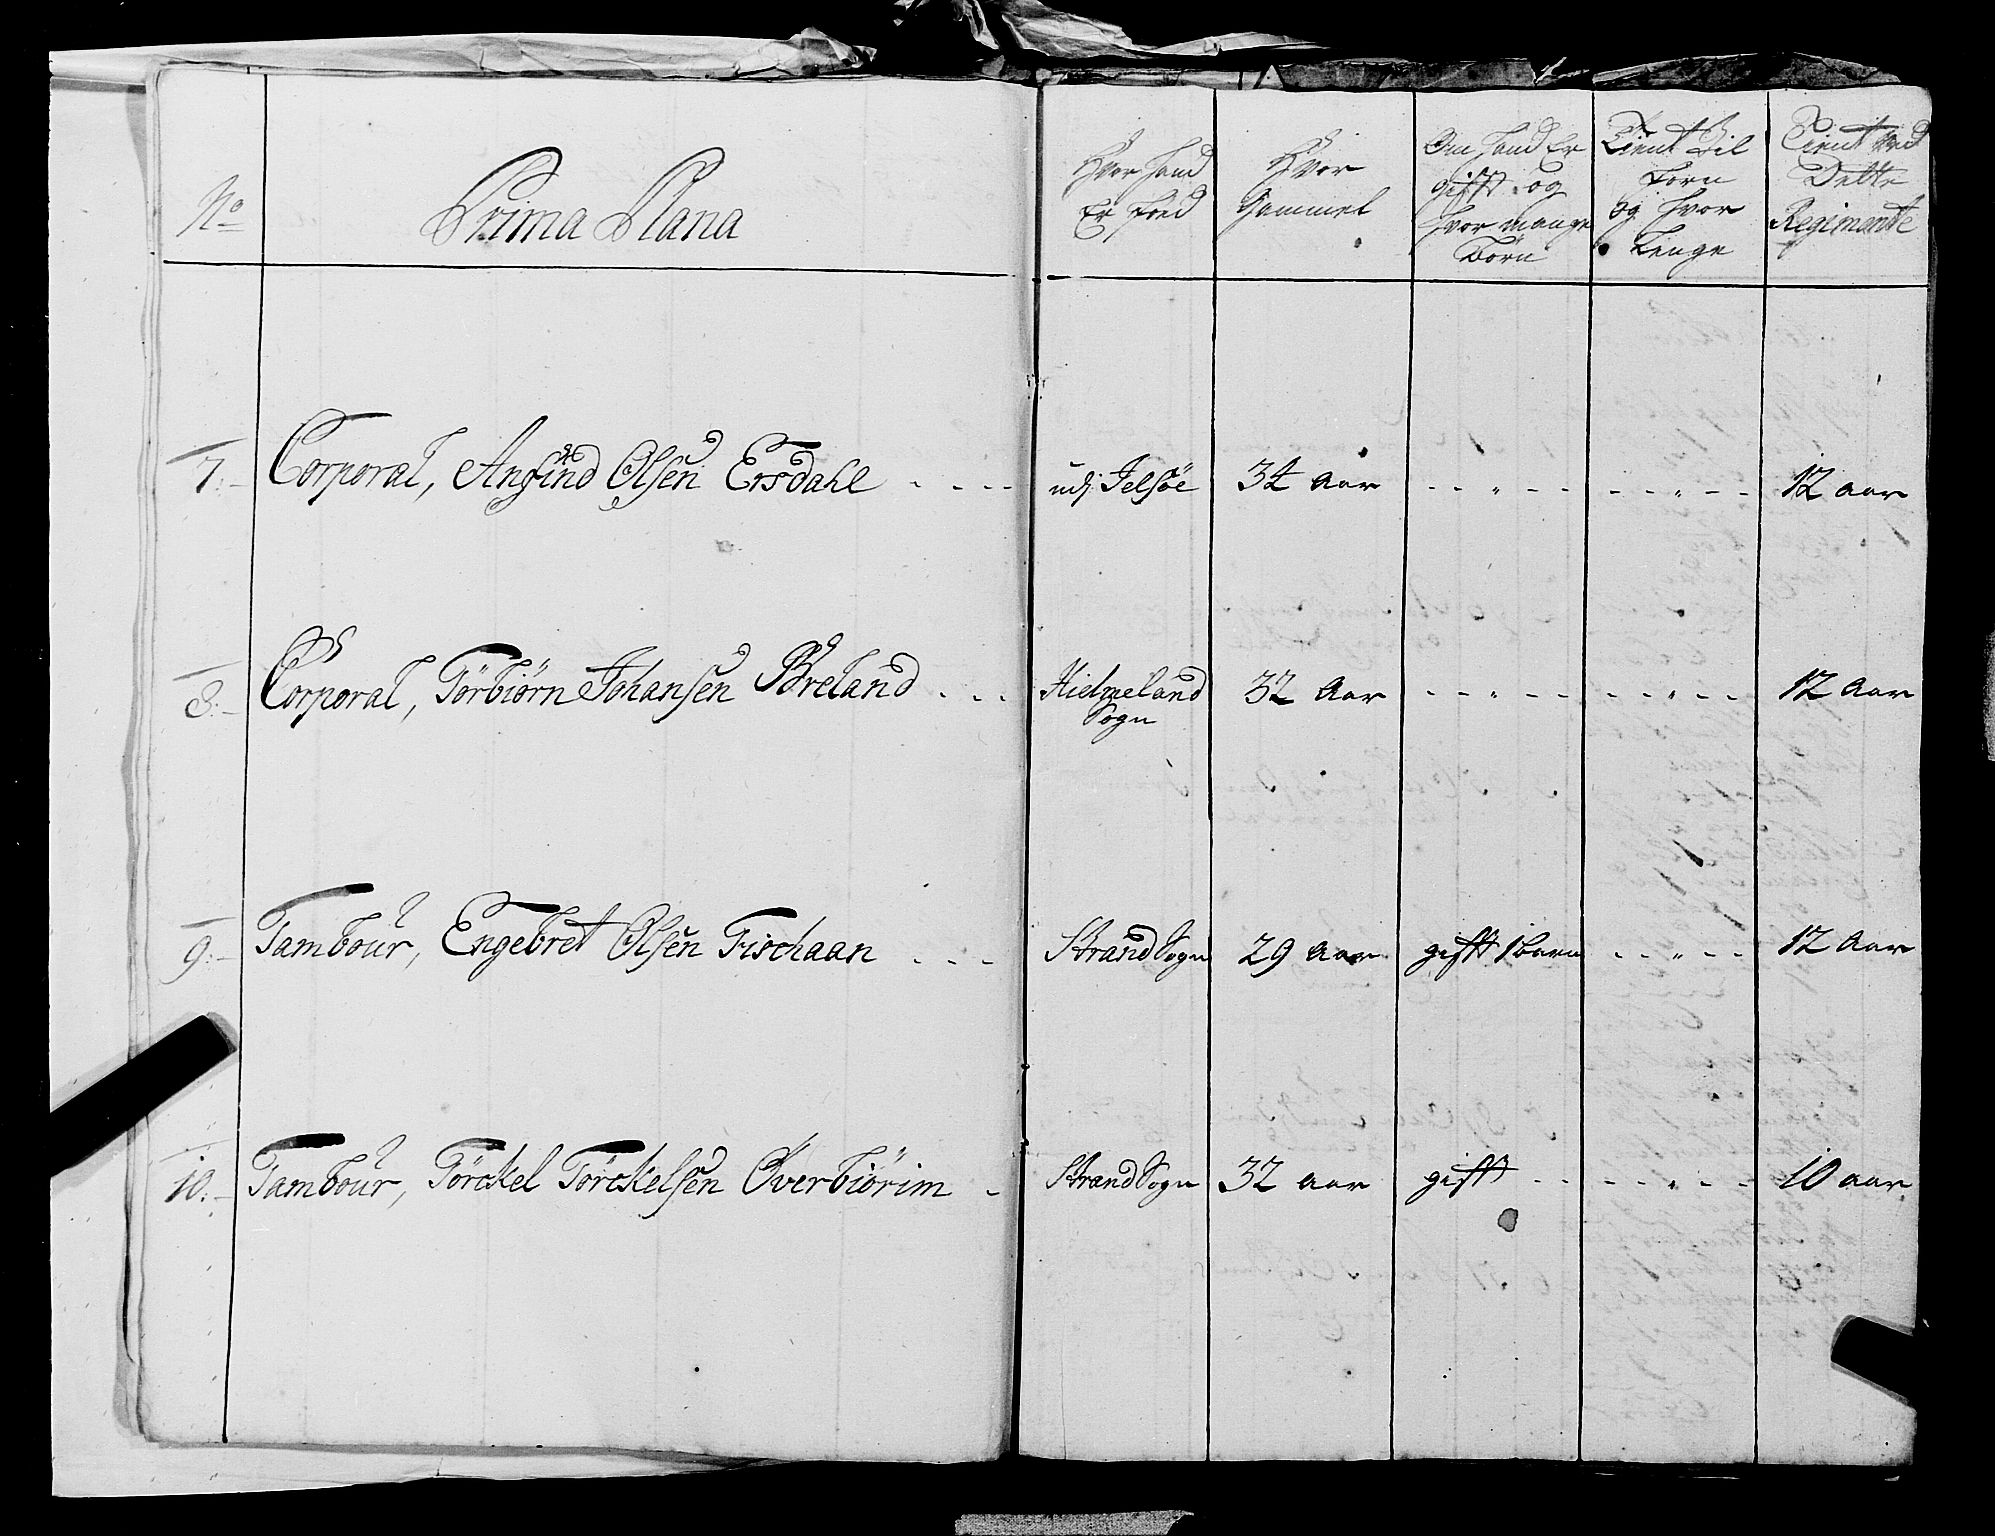 No Prima Plana
Hvor hand
Er föed
Hvor
Gammel
Om hand Er
gifft og
hvor mange
Börn
Tient Til
forn
og hvor
Lenge
Tient ved
Dette
Regimente
7:- Corporal, Ansind Olsen Ersdahl - - - - udj Jelsöe 34 aar - - „ - - - - „ - - 12 aar
8:- Corporal, Törbiörn Johansen Breland - - - Hielmeland 32 Aar - - „ - - - - „ - - 12 Aar
Sogn
9:- Tambour, Engebret Olsen Fischaan - - - Strand Sogn 29 Aar gifft 1 barn - - „ - - 12 Aar
10:- Tambour, Törckel Törckelsen Overbiörim - Strand Sogn 32 aar gifft - - - - „ - - 10 aar